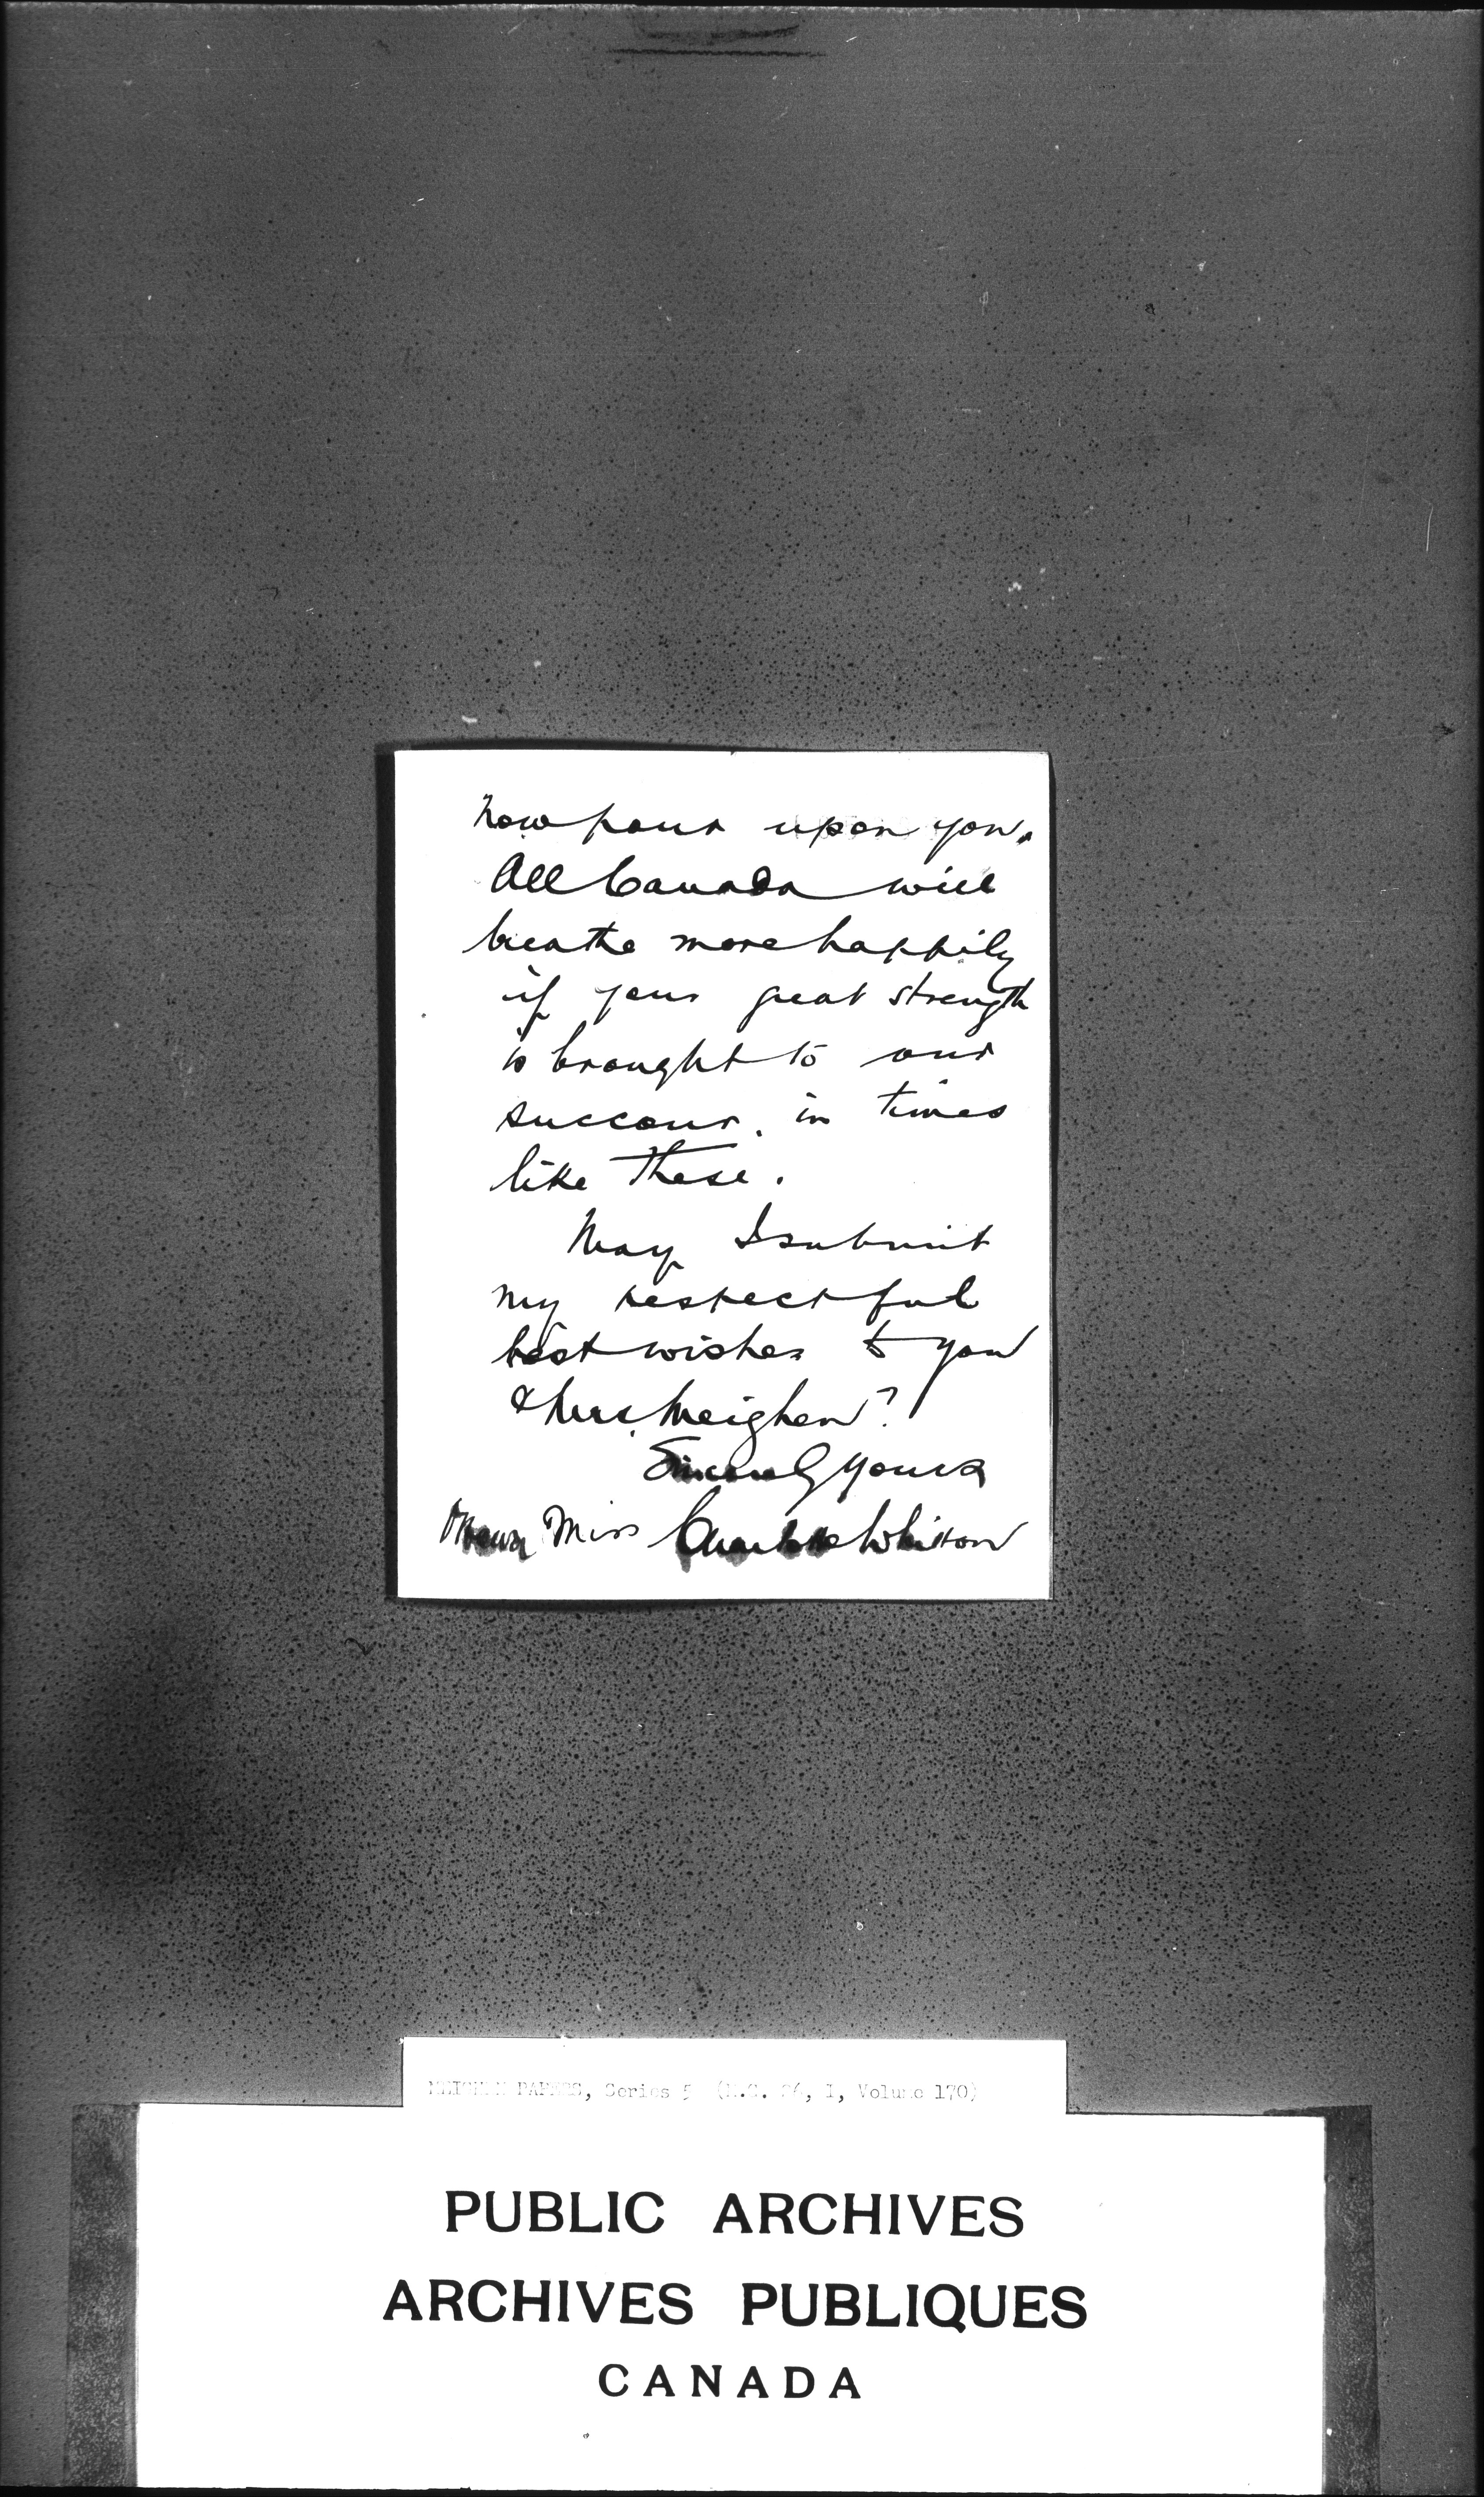 now pour upon you.
All Canada will
breathe more happily
if your great strength
is brought to our
succour. in times
like these.
May I submit
my respectful
best wishes to you
& Mrs. Meighen?
Sincerely yours
Ottawa Miss Charlotte Whitton
MEIGHEN PAPERS, Series 5 (M.G. 26, I, Volume 170)
PUBLIC ARCHIVES
ARCHIVES PUBLIQUES
CANADA